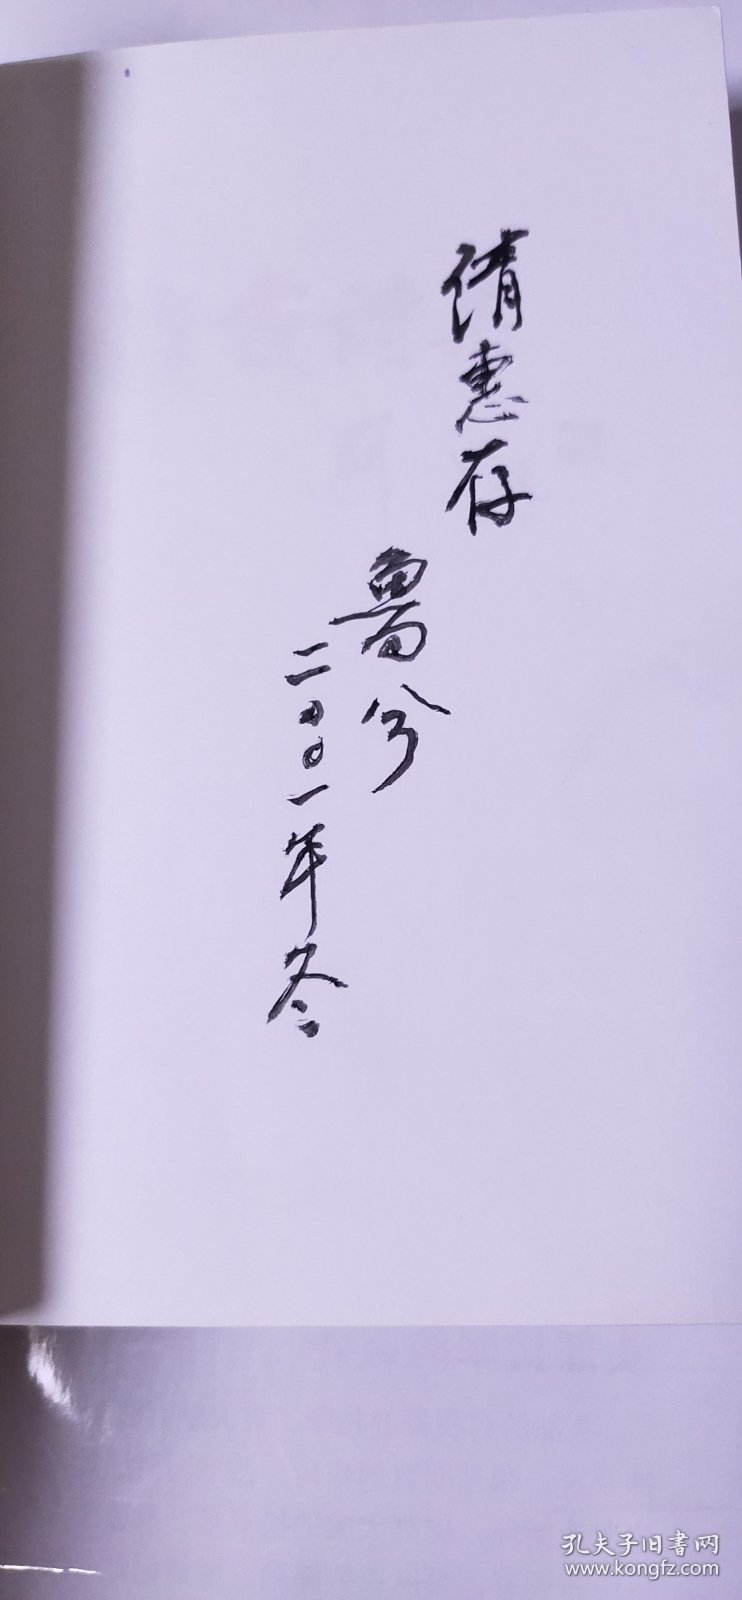 请惠存
鲁兮
二〇〇一年冬
孔夫子旧书网
www.kongfz.com